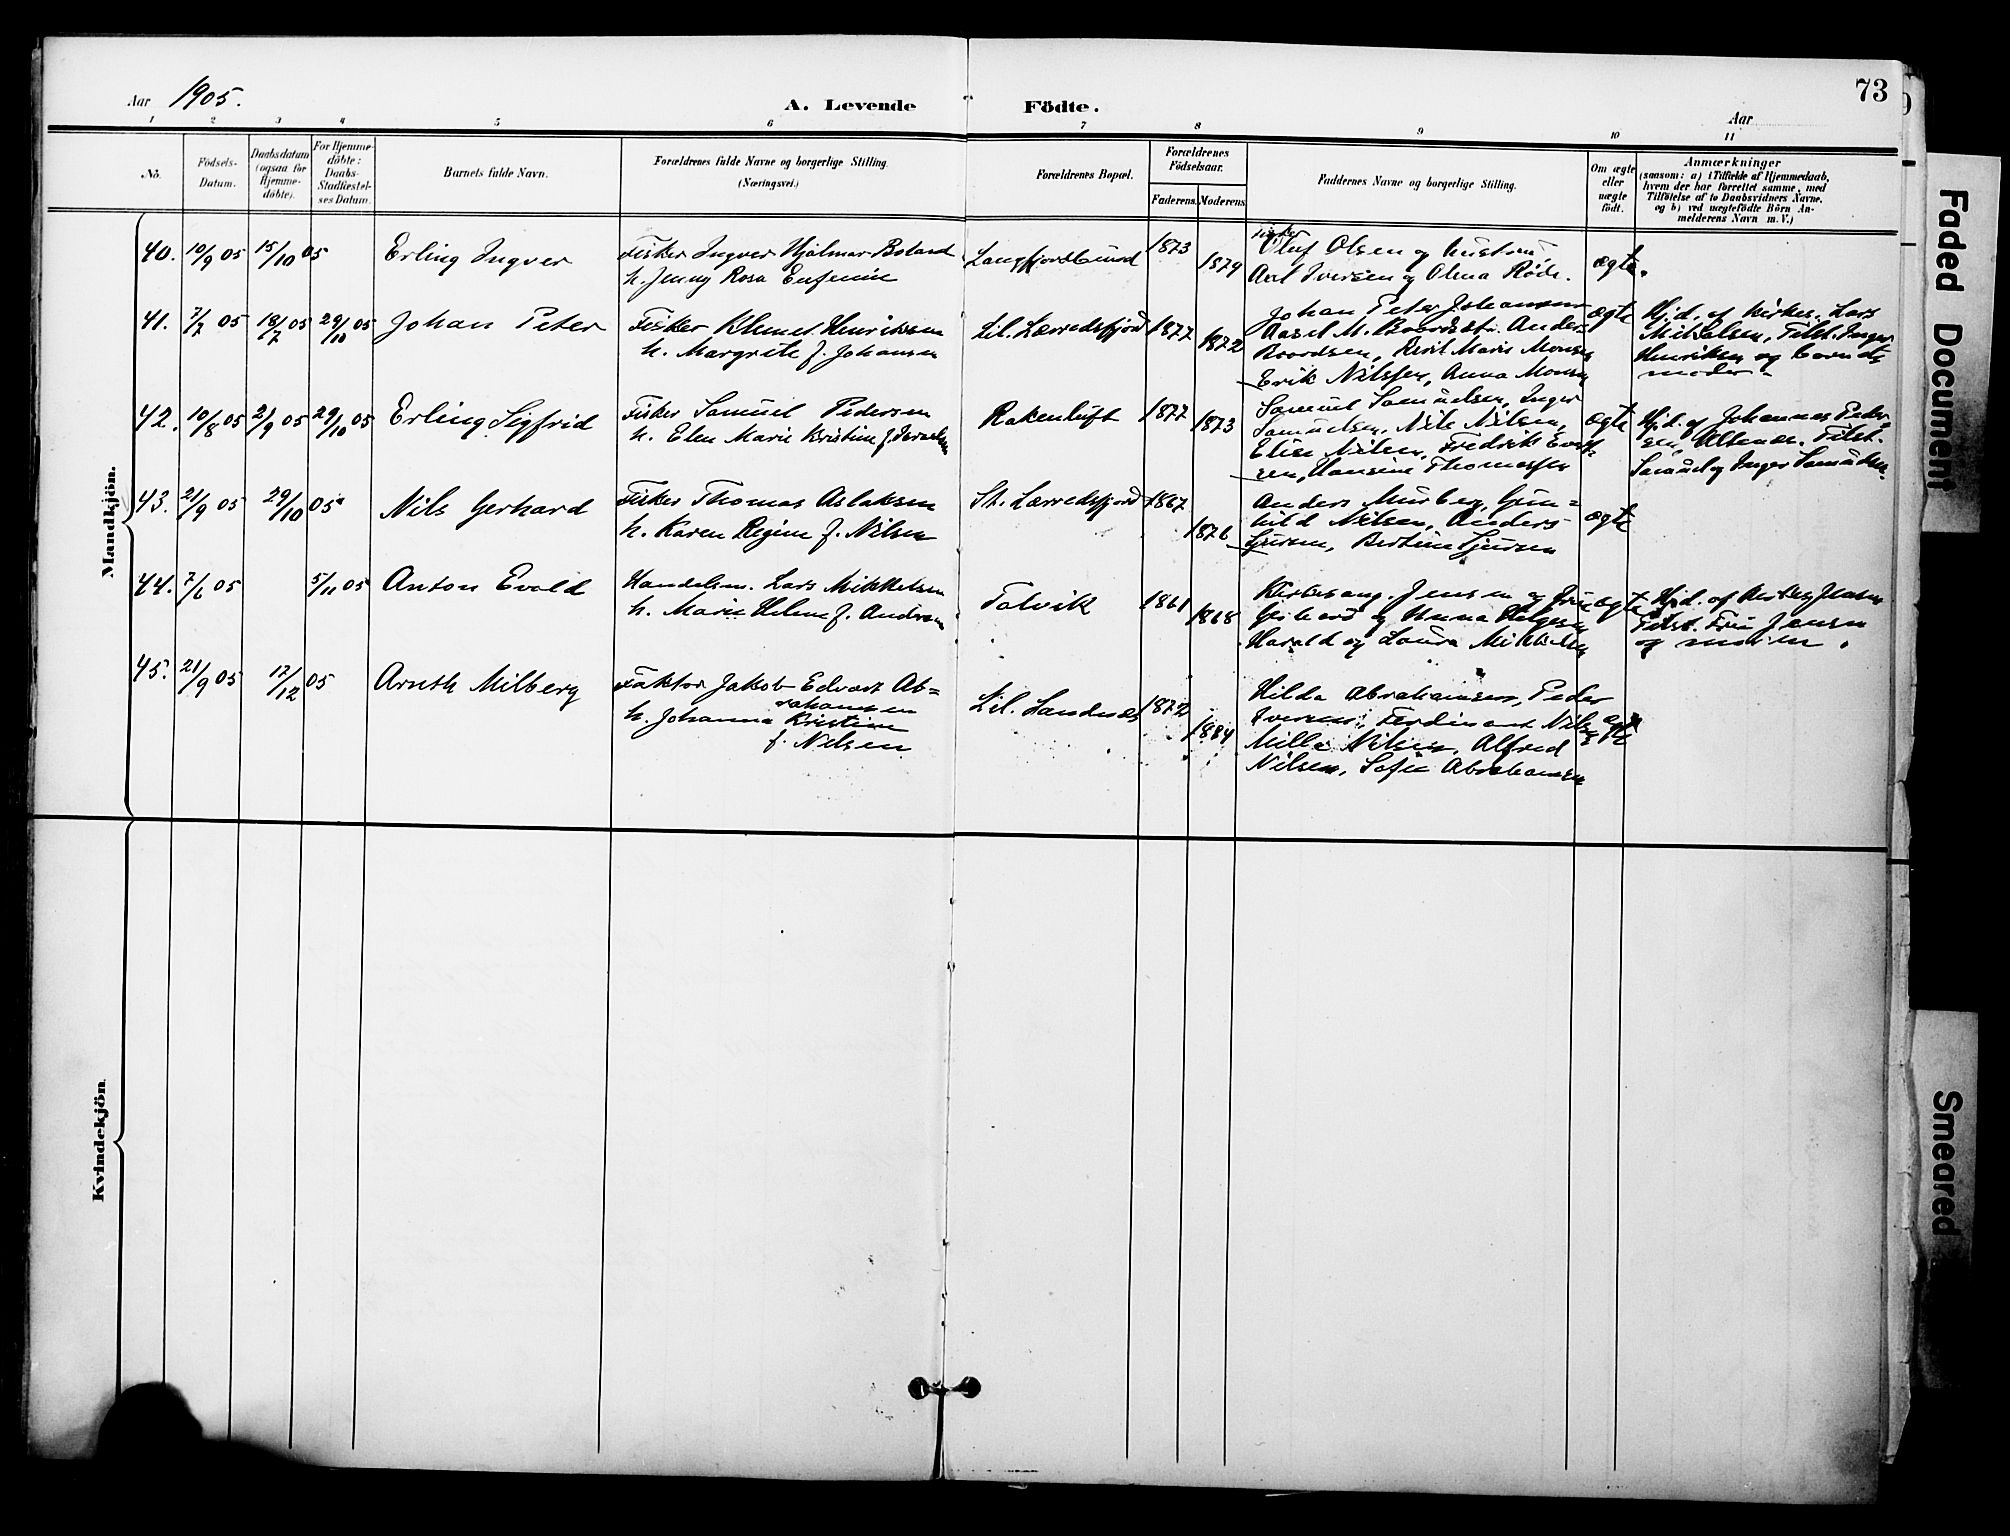 73
Aar 1905.
A. Levende Födte.
Aar
1 2 3 4 5 6 7 8 9 10 11
No.
Födsels-
Datum.
Daabsdatum
(ogsaa for
Hjemme-
döbte).
For Hjemme-
döbte:
Daabs-
Stadfæstel-
ses Datum.
Barnets fulde Navn.
Forældrenes fulde Navne og borgerlige Stilling.
(Næringsvei.)
Forældrenes Bopæl.
Forældrenes
Födselsaar.
Faderens.
Moderens.
Faddernes Navne og borgerlige Stilling.
Om ægte
eller
uægte
födt.
Anmærkninger
(saasom: a) i Tilfælde af Hjemmedaab,
hvem der har forrettet samme, med
Tilföielse af to Daabsvidners Navne,
og b) ved uægtefödte Börn An-
melderens Navn m. V.)
Mandkjön.
40. 10/9 05 15/10 05
Erling Ingver
Fisker Ingver Hjalmar Boland
h. Jenny Rosa Eufemie
Langfjordbund
1873
1879
Oluf Olsen og hustru,
Axel Iversen og Olena Røde.
ægte.
41. 7/7 05 18/7 05 29/10 05
Johan Peter
Fisker Klemet Henriksen
h. Margrete f. Johansen
Lil. Lærredsfjord
1877
1872
Johan Peter Johansen
Aasel M. Baardsdt. Anders
Baardsen, Berit Marie Monsen
Erik Nilssen, Anna Monsen
ægte
Hj.d. af kirkes. Lars
Mikkelsen, Tilst. Inger
Henriksen og barnets
moder.
42. 10/8 05 2/9 05 29/10 05
Erling Sigfrid
Fisker Samuel Pedersen
h. Elen Marie Kristine f.
Rakenluft
1877
1873
Samuel Samuelsen, Inger
Samuelsen, Nils Nilsen,
Elise Nilsen, Fredrik
sen, Hansine Thomassen
ægte
Hj.d. af Johannes Peder
sen Tilst.
Samuel og Inger Samuelsen.
43. 21/9 05 29/10 05
Nils Gerhard
Fisker Thomas Aslaksen
h. Karen Regine f. Nilsen
St. Lærredsfjord
1867
1876
Anders Murberg, Gun=
hild Nilsen, Anders
Sjursen, Bertine Sjursen
ægte
44. 7/6 05 5/11 05
Anton Evald
Handelsm. Lars Mikkelsen
h. Marie Helene f. Andresen
Talvik
1861
1868
Kirkesang. Jensen og Frue
Gerhard og Anna Helgesen
Harald og Laura Mikkelsen
ægte
Hj.d. af kirkes. Jensen
Tilst. Fru Jensen
og moren.
45. 21/9 05 17/12 05
Arnth Milberg
Faktor Jakob Edvart Ab=
rahamsen
h. Johanna Kristine
f. Nilsen
Lil. Sandnæs
1872
1884
Hilda Abrahamsen, Peder
Iversen, Ferdinant Nilsen
Milla Nilsen, Alfred
Nilsen, Sofie Abrahamsen
ægte
Kvindekjön.
Faded Document
Smeared